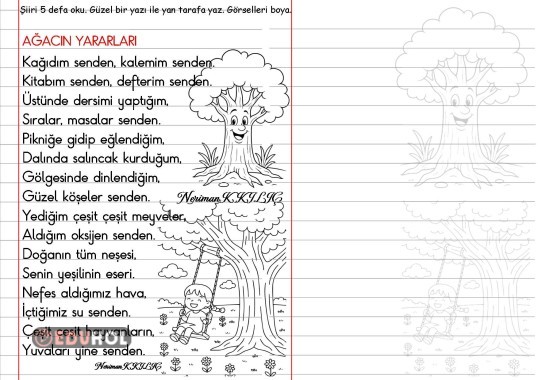 Şiiri 5 defa oku. Güzel bir yazı ile yan tarafa yaz. Görselleri boya.
AĞACIN YARARLARI
Kağıdım senden, kalemim senden.
Kitabım senden, defterim senden.
Üstünde dersimi yaptığım,
Sıralar, masalar senden.
Pikniğe gidip eğlendiğim,
Dalında salıncak kurduğum,
Gölgesinde dinlendiğim,
Güzel köşeler senden.
Neriman KKILIÇ
Yediğim çeşit çeşit meyveler,
Aldığım oksijen senden.
Doğanın tüm neşesi,
Senin yeşilinin eseri.
Nefes aldığımız hava,
İçtiğimiz su senden.
Çeşit çeşit hayvanların,
EDUROL
Yuvaları yine senden.
Neriman KKILIÇ